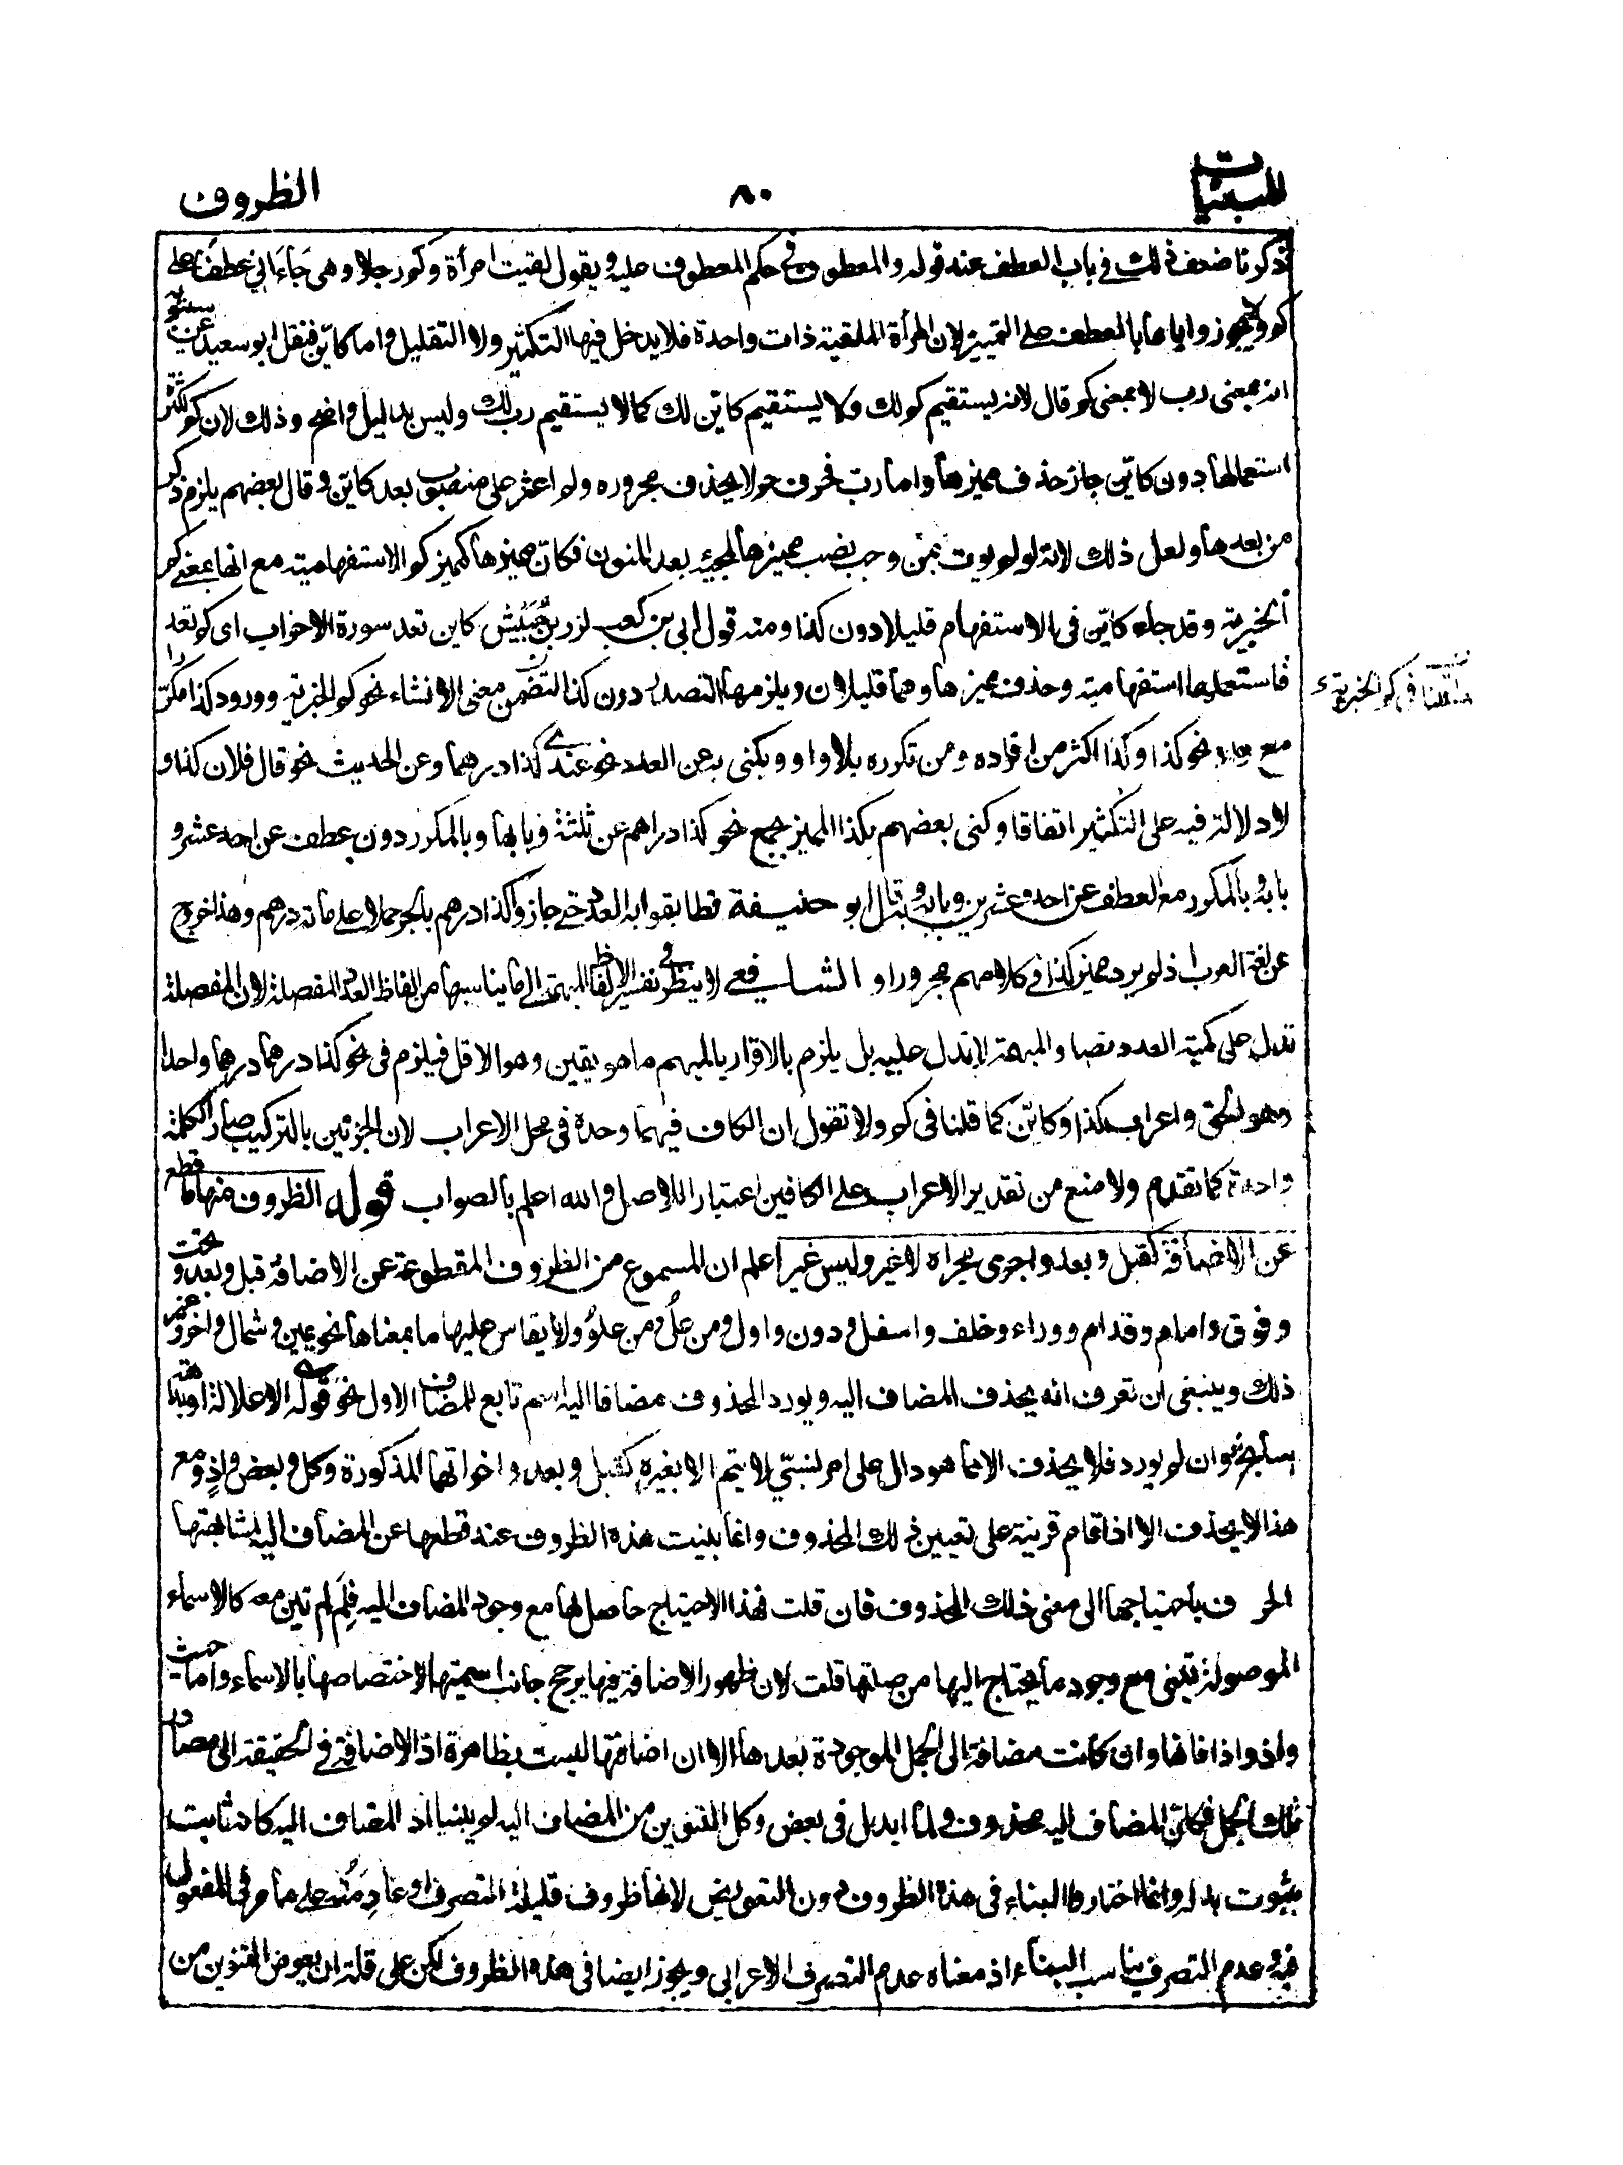 المبنيات
٨٠
الظروف
ذكرنا ضعف ذلك فى باب العطف عند قوله والمعطوف فى حكم المعطوف عليه ويقول لقيت امرأة وكم رجلا وهى جاءانى عطفا على
كم ولا يجوز واياها بالعطف على التمييز لان المرأة الملقية ذات واحدة فلا يدخل فيها التكثير ولا التقليل واما كائن فنقل ابو سعيد عن سيبويه
انه بمعنى رب لا بمعنى كم قال لانه يستقيم كم لك ولا يستقيم كائن لك كما لا يستقيم رب لك وليس بدليل واضح وذلك لان كم لكثرة
استعمالها دون كائن جاز حذف مميزها واما رب فحرف جر لا يحذف مجروره ولم اعثر على منصوب بعد كائن وقال بعضهم يلزم ذكر
من بعدها ولعل ذلك لانه لو لم يؤت بمن وجب نصب مميزها لمجيئه بعد المنون فكان مميزها كمميز كم الاستفهامية مع انها بمعنى كم
الخبرية وقد جاء كائن فى الاستفهام قليلا دون كذا ومنه قول ابى بن كعب لزر بن حبيش كاين تعد سورة الاحزاب اى كم تعد
فاستعملها استفهامية وحذف مميزها وهما قليلان ويلزمها التصدر دون كذا لتضمن معنى الانشاء نحو كم الخبرية وورود كذا مكررا
مع واو نحو كذا وكذا اكثر من افراده ومن تكرره بلا واو ويكنى به عن العدد نحو عندى كذا درهما وعن الحديث نحو قال فلان كذا و
لا دلالة فيه على التكثير اتفاقا وكنى بعضهم بكذا المميز بجمع نحو كذا دراهم عن ثلثة وبابها وبالمكرر دون عطف عن احد عشر و
بابه وبالمكرر مع العطف عن احد وعشرين وبابه وبه قال ابو حنيفة فطابقوا به العدد حتى جاز وا كذا درهم بالجر حملا على مائة درهم وهذا خروج
عن لغة العرب اذ لم يرد مميز كذا فى كلامهم مجرورا و الشافعى لا ينظر فى تفسير الالفاظ المبهمة الى ما يناسبها من الفاظ العدد المفصلة لان المفصلة
تدل على كمية العدد نصا والمبهمة لا تدل عليه بل يلزم بالاقرار بالمبهم ما هو يقين وهو الاقل فيلزم فى نحو كذا درهما درهما واحدا
وهو الحق واعراب كذا وكائن كما قلنا فى كم ولا تقول ان الكاف فيهما وحده فى محل الاعراب لان الجزئين بالتركيب صارا كلمة
واحدة كما تقدم ولا منع من تقدير الاعراب على الكافين اعتبارا للاصل والله اعلم بالصواب قوله الظروف منها ما قطع
عن الاضافة كقبل وبعد واجرى مجراه لا غير وليس غير اعلم ان المسموع من الظروف المقطوعة عن الاضافة قبل وبعد وتحت
وفوق وامام وقدام ووراء وخلف واسفل ودون واول ومن عل ومن علو ولا يقاس عليها ما بمعناها نحو يمين وشمال واخر وغير
ذلك وينبغى ان تعرف انه يحذف المضاف اليه ويورد المحذوف مضافا اليه اسم تابع للمضاف الاول نحو قوله الا علالة او بداهة
سابح وان لم يورد فلا يحذف الا مما هو دال على امر نسبى لا يتم الا بغيره كقبل وبعد واخواتهما المذكورة وكل وبعض واذ ومع
هذا لا يحذف الا اذا قام قرينة على تعيين ذلك المحذوف وانما بنيت هذه الظروف عند قطعها عن المضاف اليه لمشابهتها
الحرف باحتياجها الى معنى ذلك المحذوف فان قلت فهذا الاحتياج حاصل لها مع وجود المضاف اليه فلم لم تبن معه كالاسماء
الموصولة تبنى مع وجود ما يحتاج اليها من صلتها قلت لان ظهور الاضافة فيها يرجح جانب اسميتها لاختصاصها بالاسماء واما حيث
واذ واذا فانها وان كانت مضافة الى الجمل الموجودة بعدها الا ان اضافتها ليست بظاهرة اذ الاضافة فى الحقيقة الى مصادر
تلك الجمل فكان المضاف اليه محذوف ولما ابدل فى بعض وكل التنوين من المضاف اليه لم يبنيا اذ المضاف اليه كانه ثابت
بثبوت بدله وانما اختاروا البناء فى هذه الظروف دون التعويض لانها ظروف قليلة التصرف او عادمته على ما مر فى المفعول
فيه وعدم التصرف يناسب البناء اذ معناه عدم التصرف الاعرابى ويجوز ايضا فى هذه الظروف لكن على قلة ان يعوض التنوين من
قلنا فى كم الخبرية